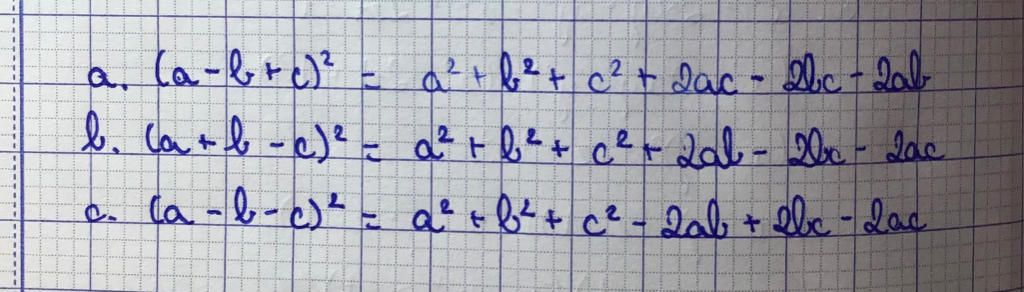 a. (a - b + c)² = a² + b² + c² + 2ac - 2bc - 2ab
b. (a + b - c)² = a² + b² + c² + 2ab - 2bc - 2ac
c. (a - b - c)² = a² + b² + c² - 2ab + 2bc - 2ac